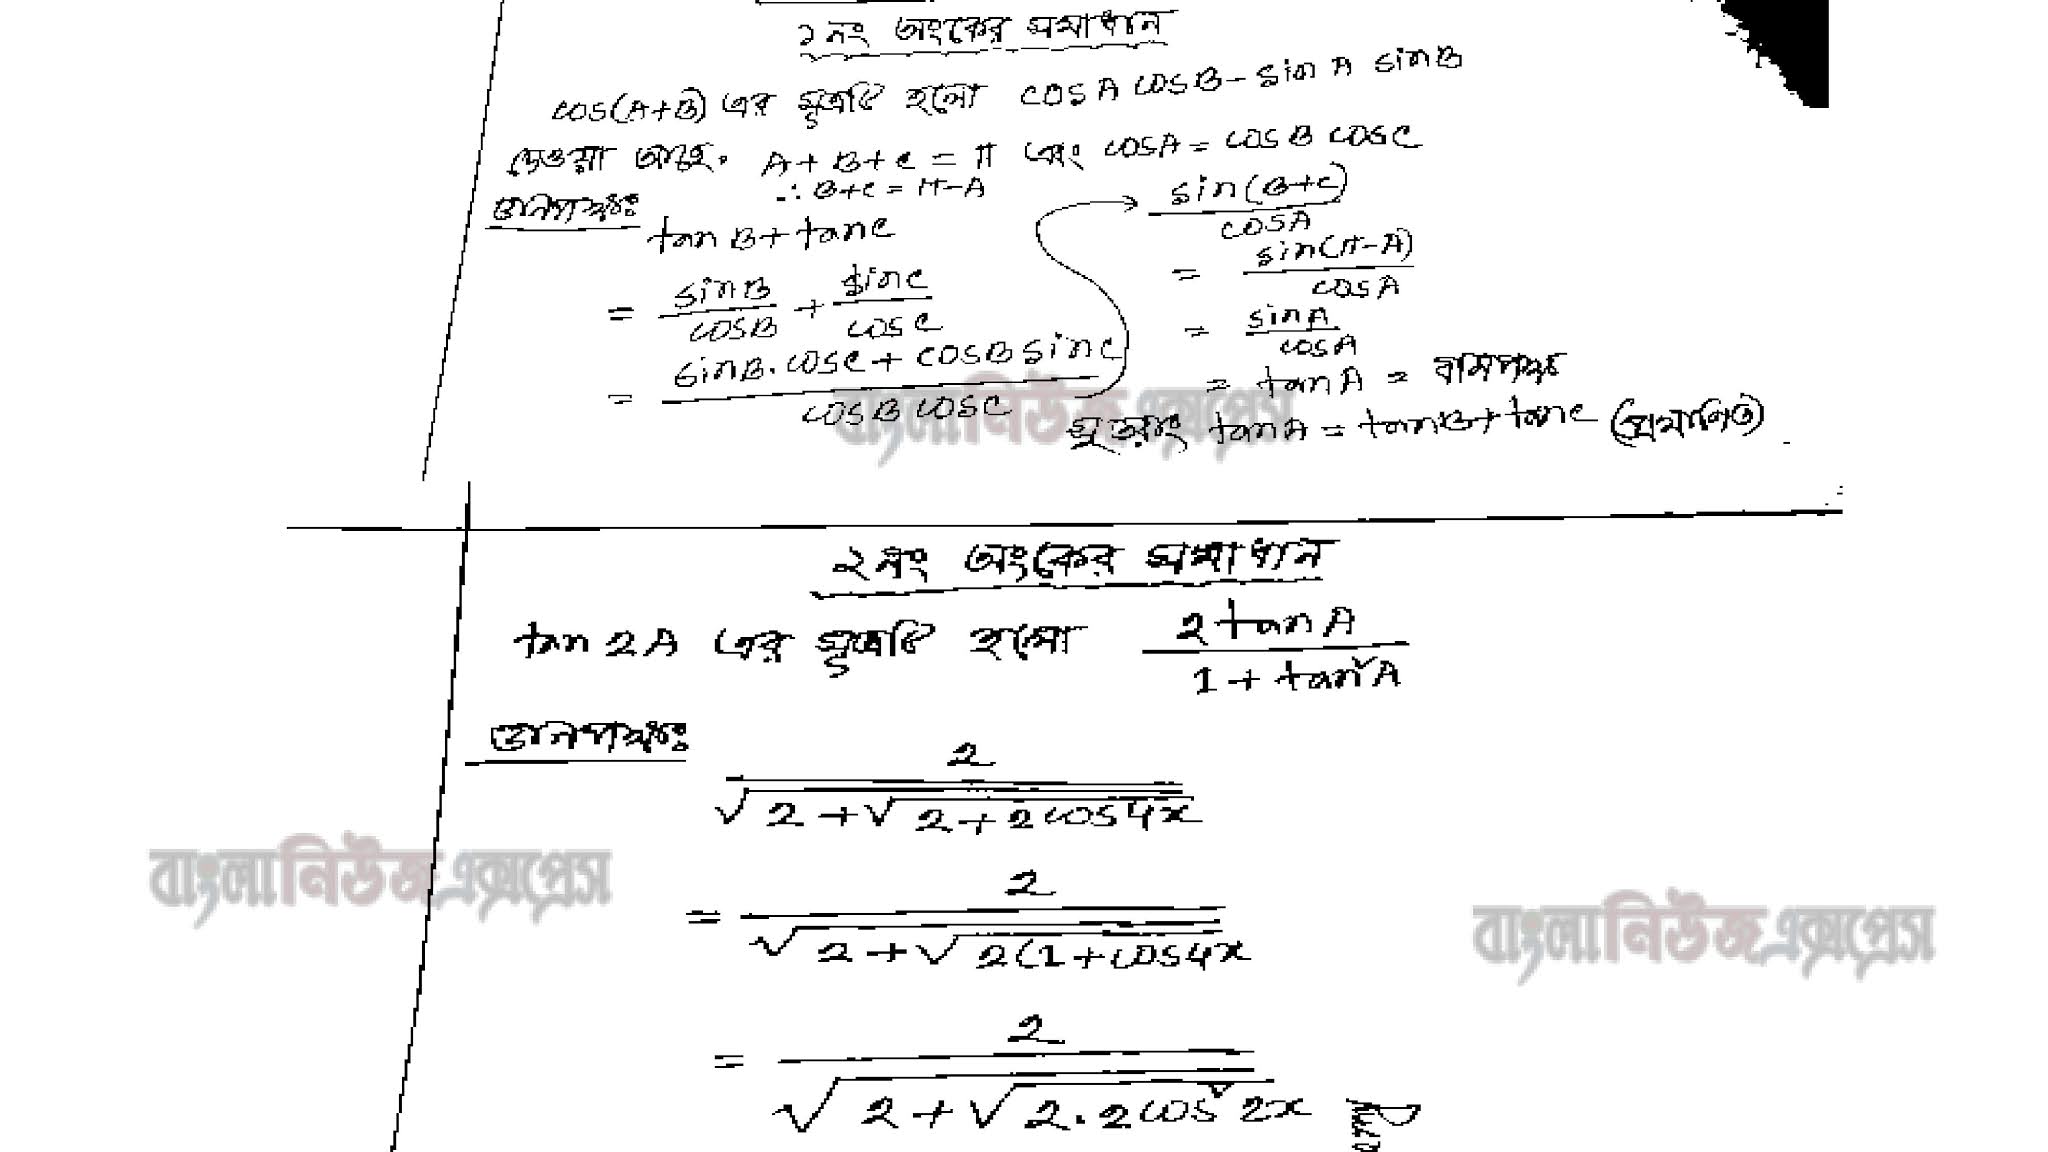 ১নং অংকের সমাধান
cos(A+B) এর সূত্রটি হলো cosA cosB - sinA sinB
দেওয়া আছে, A+B+C = π এবং cosA = cosB cosC
∴ B+C = π-A
ডানপক্ষঃ
tanB + tanC
= sinB/cosB + sinC/cosC
= (sinB.cosC + cosB sinC)/(cosB cosC)
sin(B+C)/cosA
= sin(π-A)/cosA
= sinA/cosA
= tanA = বামপক্ষ
সুতরাং tanA = tanB + tanC (প্রমাণিত)
২নং অংকের সমাধান
tan2A এর সূত্রটি হলো 2tanA/(1+tan²A)
ডানপক্ষঃ
2/√(2+√(2+2cos4x))
= 2/√(2+√(2(1+cos4x
= 2/√(2+√(2.2cos²2x))
বাংলানিউজএক্সপ্রেস
বাংলানিউজএক্সপ্রেস
বাংলানিউজএক্সপ্রেস